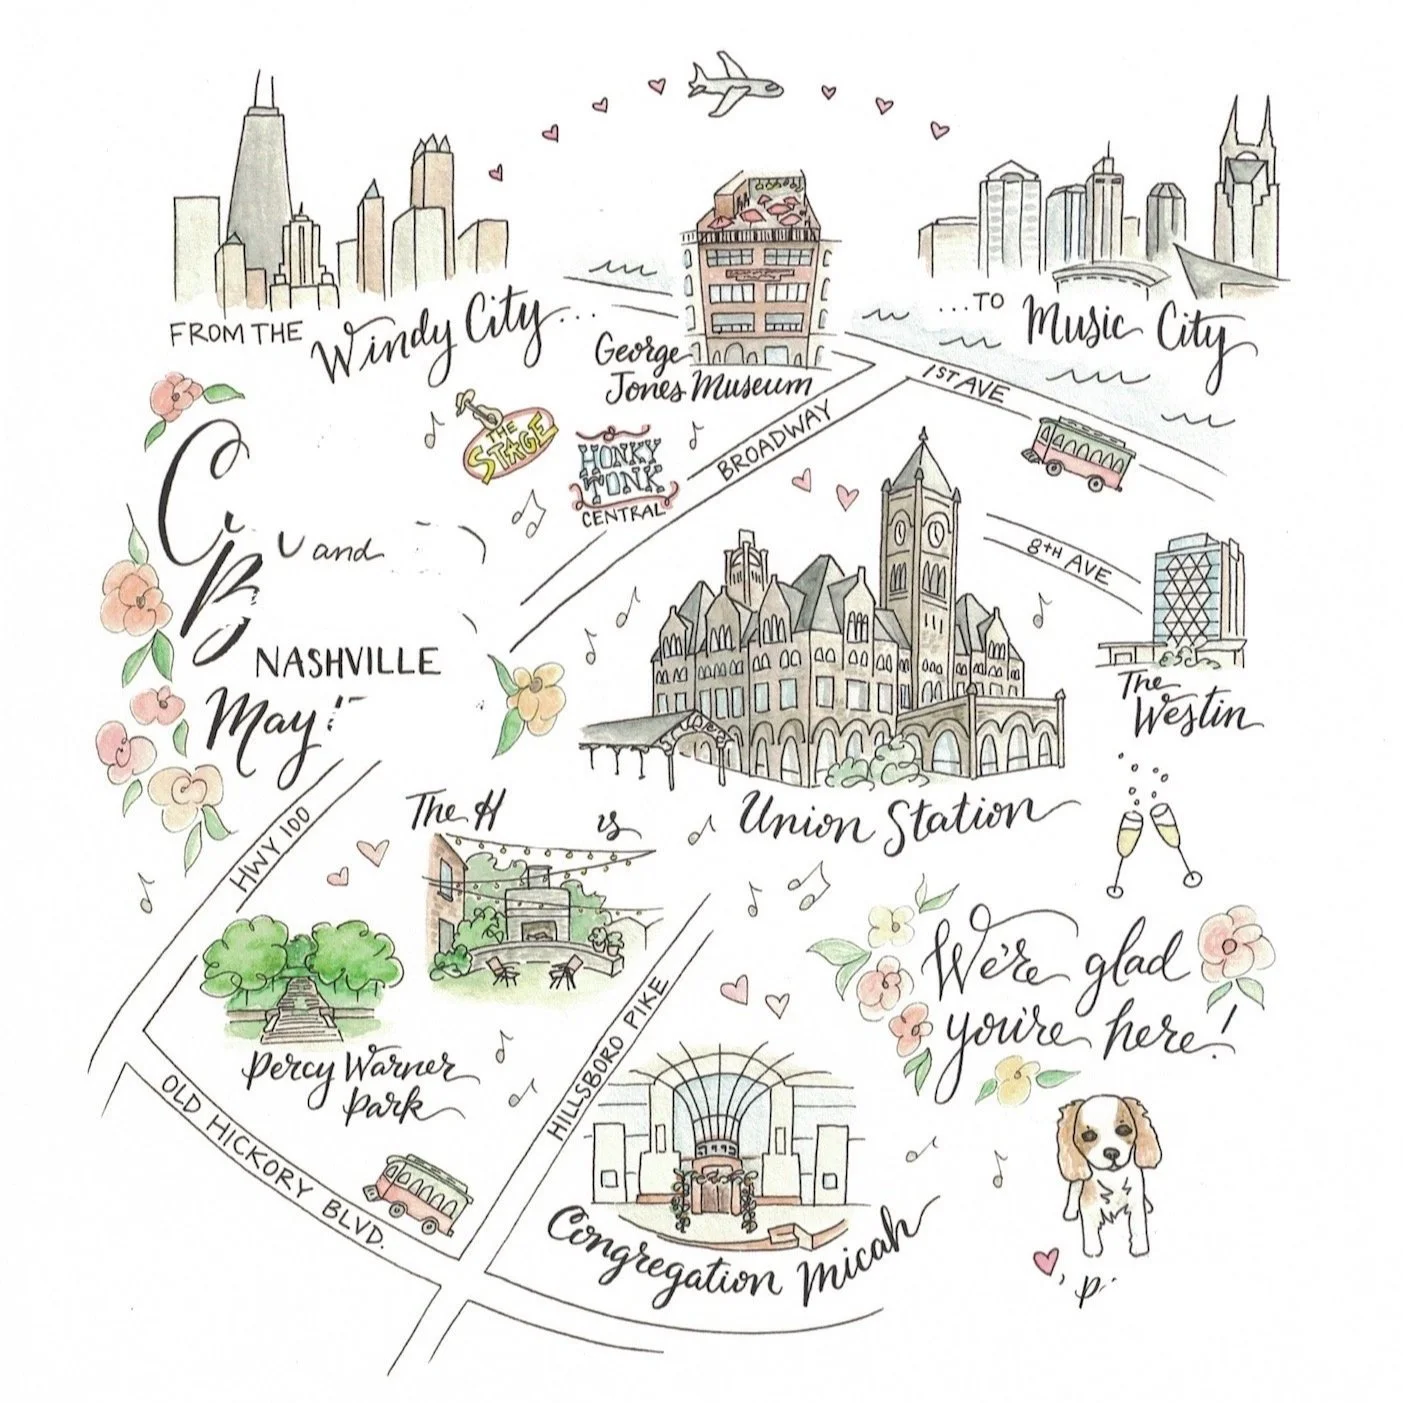 FROM THE Windy City...
...TO Music City
George
Jones Museum
BROADWAY
1ST AVE
THE
STAGE
HONKY
TONK
CENTRAL
8TH AVE
and
NASHVILLE
May
The Westin
Union Station
HWY 100
The
Percy Warner
Park
OLD HICKORY BLVD.
HILLSBORO PIKE
Congregation Micah
We're glad
you're here!